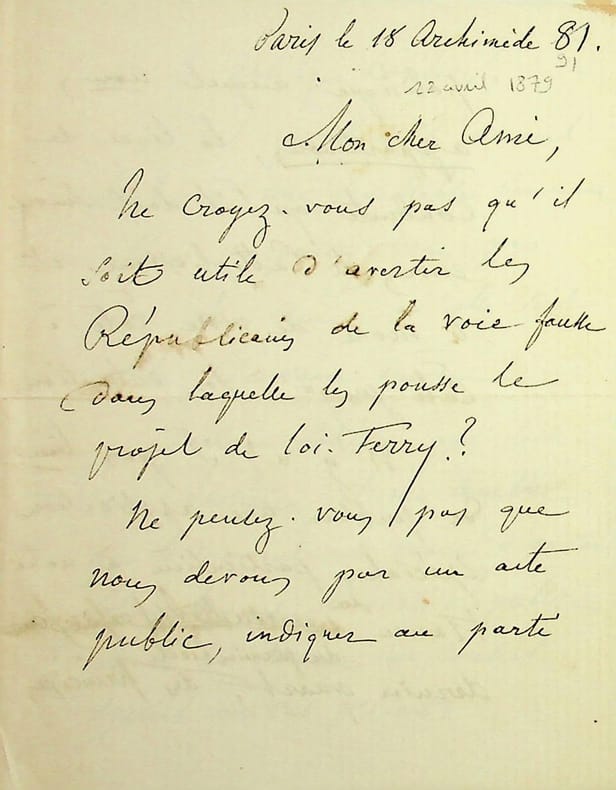 Paris le 18 Archimède 81.
91
22 avril 1879
Mon cher Ami,
Ne croyez-vous pas qu'il
soit utile d'avertir les
Républicains de la voie fausse
dans laquelle les pousse le
projet de loi-Ferry ?
Ne pensez-vous pas que
nous devons par un acte
public, indiquer au parti